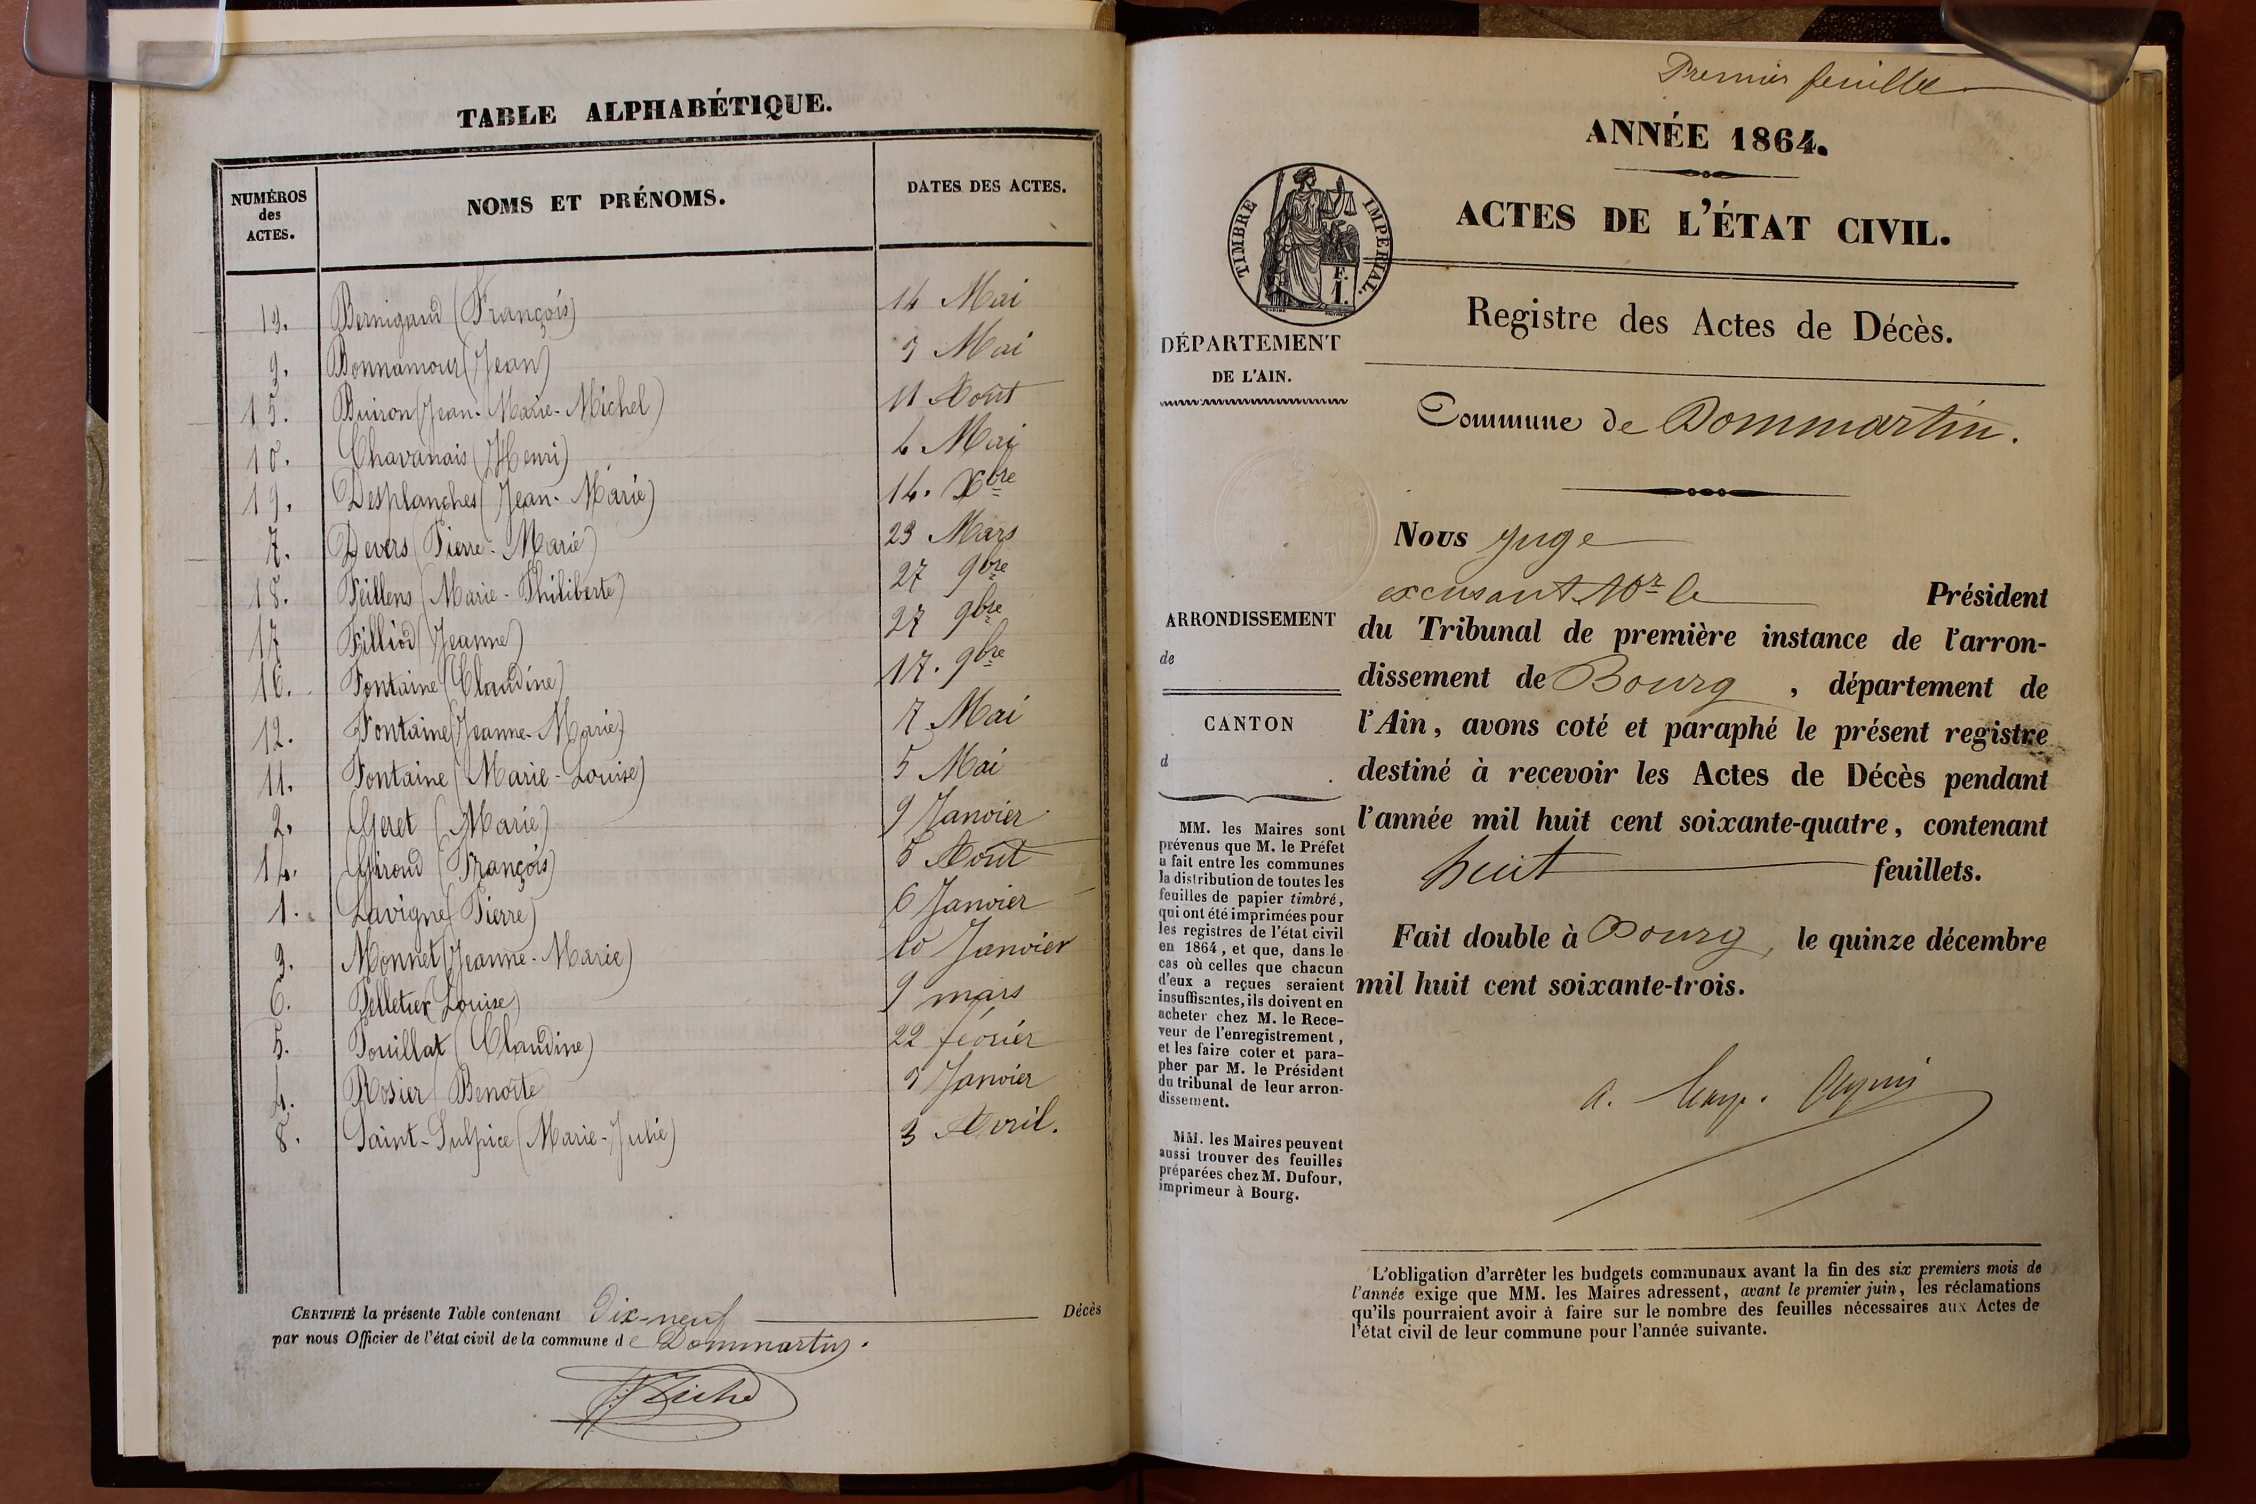 TABLE ALPHABÉTIQUE.
NUMÉROS des ACTES. NOMS ET PRÉNOMS. DATES DES ACTES.
13. Bernigaud (François) 14 Mai
9. Bonnamour (Jean) 3 Mai
15. Buiron (Jean-Marie-Michel) 11 Août
10. Chavanais (Henri) 4 Mai
19. Desplanches (Jean-Marie) 14. Xbre
7. Devers (Pierre-Marie) 23 Mars
18. Feillens (Marie-Philiberte) 27 9bre
17 Filliod (Jeanne) 27 9bre
16. Fontaine (Claudine) 17. 9bre
12. Fontaine (Jeanne-Marie) 7 Mai
11. Fontaine (Marie-Louise) 5 Mai
2. Geret (Marie) 9 Janvier
14. Giroud (François) 5 Août
1. Lavigne (Pierre) 6 Janvier
3. Monnet (Jeanne-Marie) 10 Janvier
6. Pelletier (Louise) 9 mars
5. Pouillat (Claudine) 22 février
4. Rosier (Benoîte 3 Janvier
8. Saint-Sulpice (Marie-Julie) 3 Avril.
CERTIFIÉ la présente Table contenant Dix-neuf Décès
par nous Officier de l'état civil de la commune de Dommartin.
Premier feuillet
ANNÉE 1864.
ACTES DE L'ÉTAT CIVIL.
TIMBRE IMPERIAL.
F.
1.
Registre des Actes de Décès.
DÉPARTEMENT
DE L'AIN.
Commune de Dommartin.
ARRONDISSEMENT
de
CANTON
d
MM. les Maires sont
prévenus que M. le Préfet
a fait entre les communes
la distribution de toutes les
feuilles de papier timbré,
qui ont été imprimées pour
les registres de l'état civil
en 1864, et que, dans le
cas où celles que chacun
d'eux a reçues seraient
insuffisantes, ils doivent en
acheter chez M. le Rece-
veur de l'enregistrement,
et les faire coter et para-
pher par M. le Président
du tribunal de leur arron-
dissement.
MM. les Maires peuvent
aussi trouver des feuilles
préparées chez M. Dufour,
imprimeur à Bourg.
Nous Juge
excusant Mr le Président
du Tribunal de première instance de l'arron-
dissement de Bourg, département de
l'Ain, avons coté et paraphé le présent registre
destiné à recevoir les Actes de Décès pendant
l'année mil huit cent soixante-quatre, contenant
huit feuillets.
Fait double à Bourg, le quinze décembre
mil huit cent soixante-trois.
L'obligation d'arrêter les budgets communaux avant la fin des six premiers mois de
l'année exige que MM. les Maires adressent, avant le premier juin, les réclamations
qu'ils pourraient avoir à faire sur le nombre des feuilles nécessaires aux Actes de
l'état civil de leur commune pour l'année suivante.